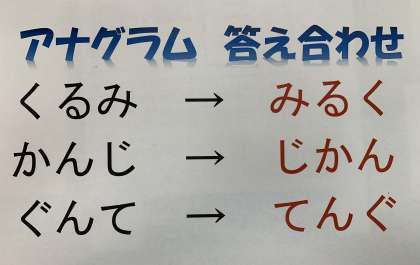 アナグラム 答え合わせ
くるみ → みるく
かんじ → じかん
ぐんて → てんぐ